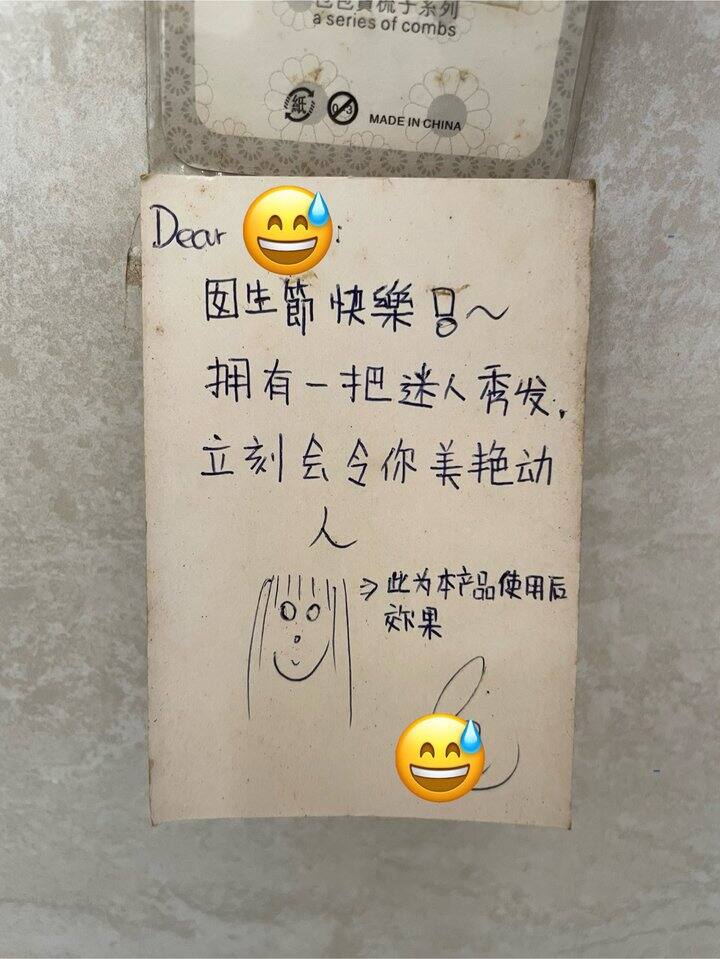 梳子系列
a series of combs
紙 0-3 MADE IN CHINA
Dear
囡生節快樂!~
拥有一把迷人秀发,
立刻会令你美艳动
人
→此为本产品使用后
效果